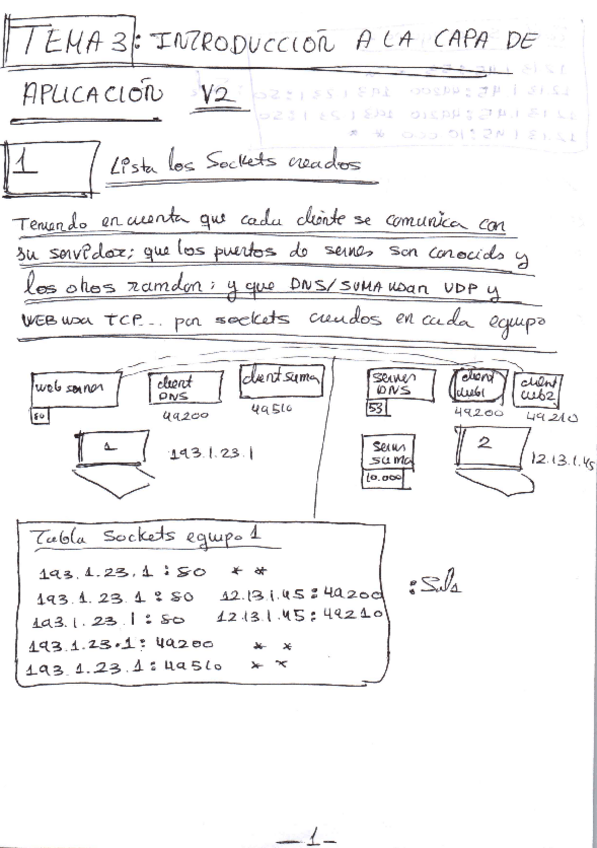 TEMA 3: INTRODUCCIÓN A LA CAPA DE
APLICACIÓN V2
1 Lista los Sockets creados
Teniendo en cuenta que cada cliente se comunica con
su servidor; que los puertos de server son conocids y
los otros ramdon; y que DNS/SUMA usan UDP y
WEB usa TCP... pon sockets creados en cada equipo
web server
80
client DNS
49200
client suma
49510
1
193.1.23.1
Server DNS
53
client web1
49200
client web2
49210
Server suma
10.000
2
12.13.1.45
Tabla Sockets equipo 1
193.1.23.1:80 * *
193.1.23.1:80 12.13.1.45:49200
193.1.23.1:80 12.13.1.45:49210
193.1.23.1:49200 * *
193.1.23.1:49510 * *
-1-